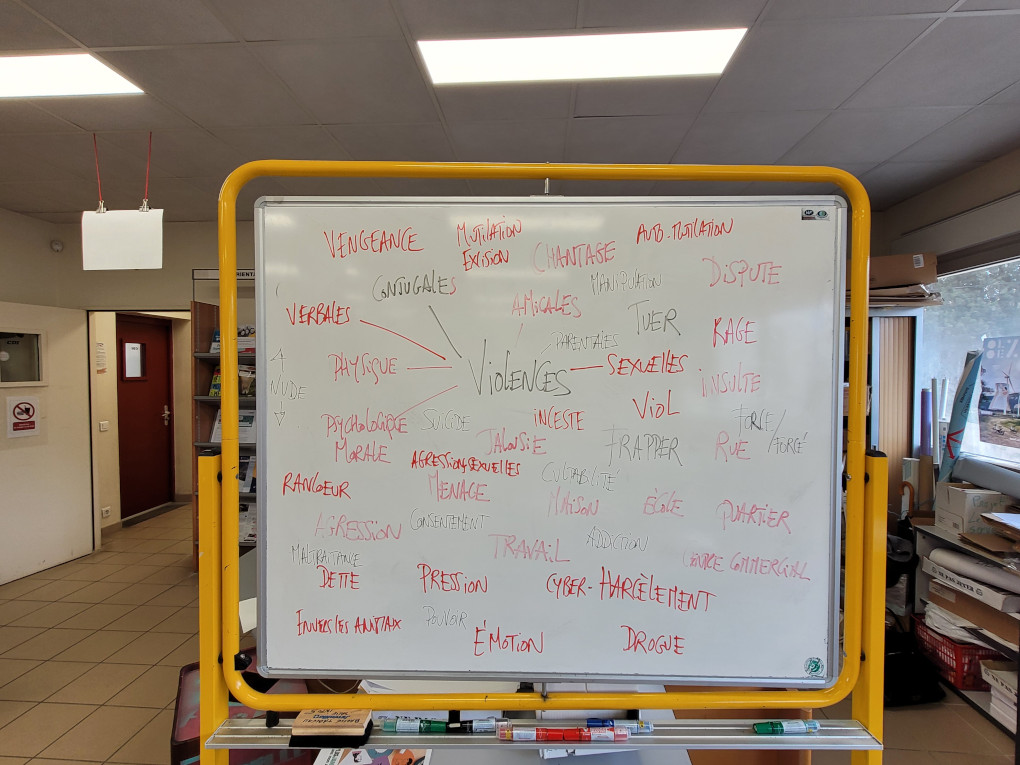 VENGEANCE
MUTILATION
EXCISION
CHANTAGE
AUTO-MUTILATION
CONJUGALES
AMICALES
MANIPULATION
DISPUTE
VERBALES
PARENTALES
TUER
RAGE
PHYSIQUE
VIOLENCES
SEXUELLES
INSULTE
NUDE
PSYCHOLOGIQUE
MORALE
SUICIDE
INCESTE
VIOL
FORCE/
FORCÉ
JALOUSIE
FRAPPER
RUE
AGRESSION SEXUELLES
CULPABILITÉ
RANCOEUR
MENACE
MAISON
ÉCOLE
QUARTIER
AGRESSION
CONSENTEMENT
TRAVAIL
ADDICTION
MALTRAITANCE
CENTRE COMMERCIAL
DETTE
PRESSION
CYBER-HARCÈLEMENT
ENVERS LES ANIMAUX
POUVOIR
ÉMOTION
DROGUE